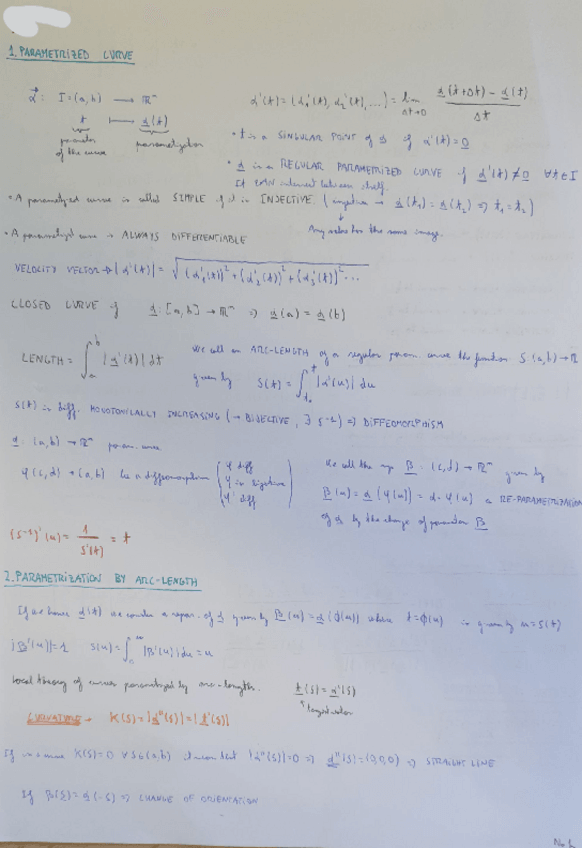 1. PARAMETRIZED CURVE
α⃗: I=(a,b) → ℝⁿ
t ↦ α(t)
parameter of the curve
parametrization
α'(t) = (α₁'(t), α₂'(t), ...) = lim Δt→0 (α(t+Δt) - α(t)) / Δt
• t is a SINGULAR POINT of α if α'(t) = 0
• α is a REGULAR PARAMETRIZED CURVE if α'(t) ≠ 0 ∀t∈I
It CAN intersect between itself.
• A parametrized curve is called SIMPLE if it is INJECTIVE. (injective → α(t₁) = α(t₂) ⇒ t₁ = t₂)
• A parametrized curve is ALWAYS DIFFERENTIABLE
Any value has the same image.
VELOCITY VECTOR → |α'(t)| = √((α₁'(t))² + (α₂'(t))² + (α₃'(t))² ...
CLOSED CURVE if α: [a,b] → ℝⁿ ⇒ α(a) = α(b)
LENGTH = ∫ₐᵇ |α'(t)| dt
We call an ARC-LENGTH of a regular param. curve the function S (a,b) → ℝ
given by S(t) = ∫ₜ₀ᵗ |α'(u)| du
S(t) is diff. MONOTONICALLY INCREASING (→ BIJECTIVE, ∃ S⁻¹) ⇒ DIFFEOMORPHISM
α: (a,b) → ℝⁿ param. curve
φ(c,d) → (a,b) be a diffeomorphism { φ diff
φ is bijective
φ⁻¹ diff
We call the map β: (c,d) → ℝⁿ given by
β(u) = α(φ(u)) = α∘φ(u) a RE-PARAMETRIZATION
of α by the change of parameter β
(S⁻¹)'(u) = 1/S'(t) = t
2. PARAMETRIZATION BY ARC-LENGTH
If we have α(t) we consider a repar. of α given by β(u) = α(φ(u)) where t=φ(u) is given by u=S(t)
|β'(u)|=1 S(u) = ∫₀ᵘ |β'(u)| du = u
Local theory of curves parametrized by arc-length.
t(s) = α'(s)
↑ tangent vector
CURVATURE → K(s) = |α''(s)| = |t'(s)|
If K(s)=0 ∀s∈(a,b) it means that |α''(s)|=0 ⇒ α''(s)=(0,0,0) ⇒ STRAIGHT LINE
If β(s) = α(-s) ⇒ CHANGE OF ORIENTATION